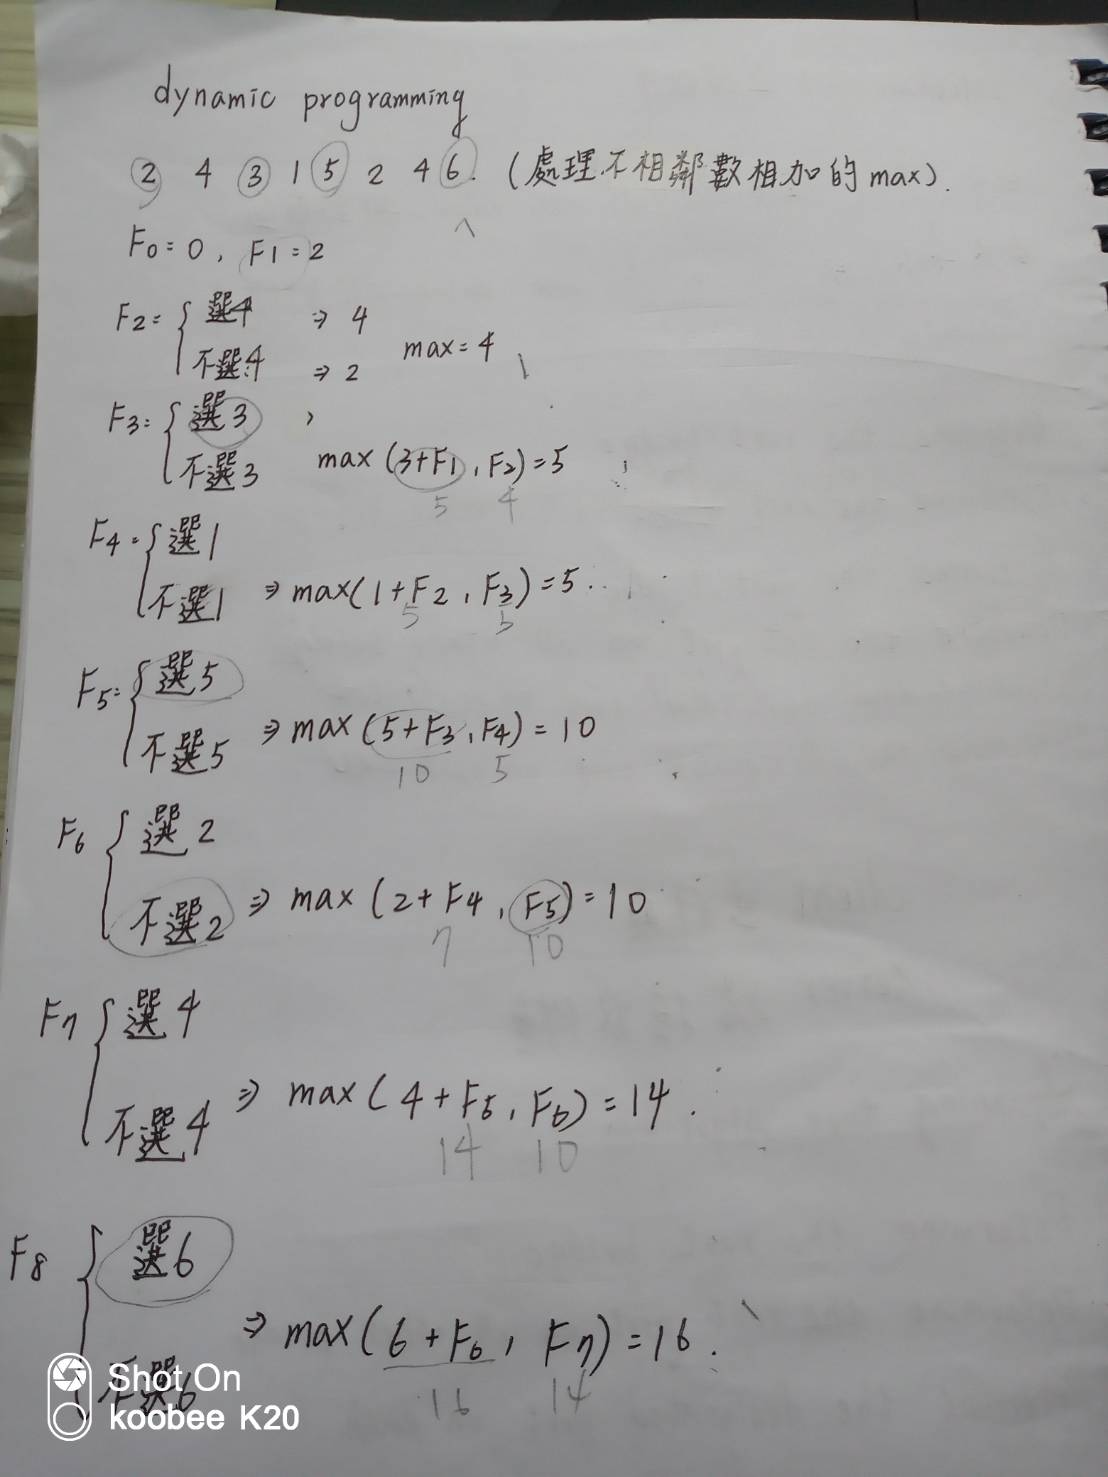 dynamic programming
2 4 3 1 5 2 4 6. (處理不相鄰數相加的max).
F0=0, F1=2
F2= 選4 ⇒ 4
不選4 ⇒ 2 max=4
F3= 選3
不選3 max(3+F1, F2)=5
5 4
F4= 選1
不選1 ⇒ max(1+F2, F3)=5.
5 5
F5= 選5
不選5 ⇒ max(5+F3, F4)=10
10 5
F6 選2
不選2 ⇒ max(2+F4, F5)=10
7 10
F7 選4
不選4 ⇒ max(4+F5, F6)=14.
14 10
F8 選6
不選6 ⇒ max(6+F6, F7)=16.
16 14
Shot On
koobee K20